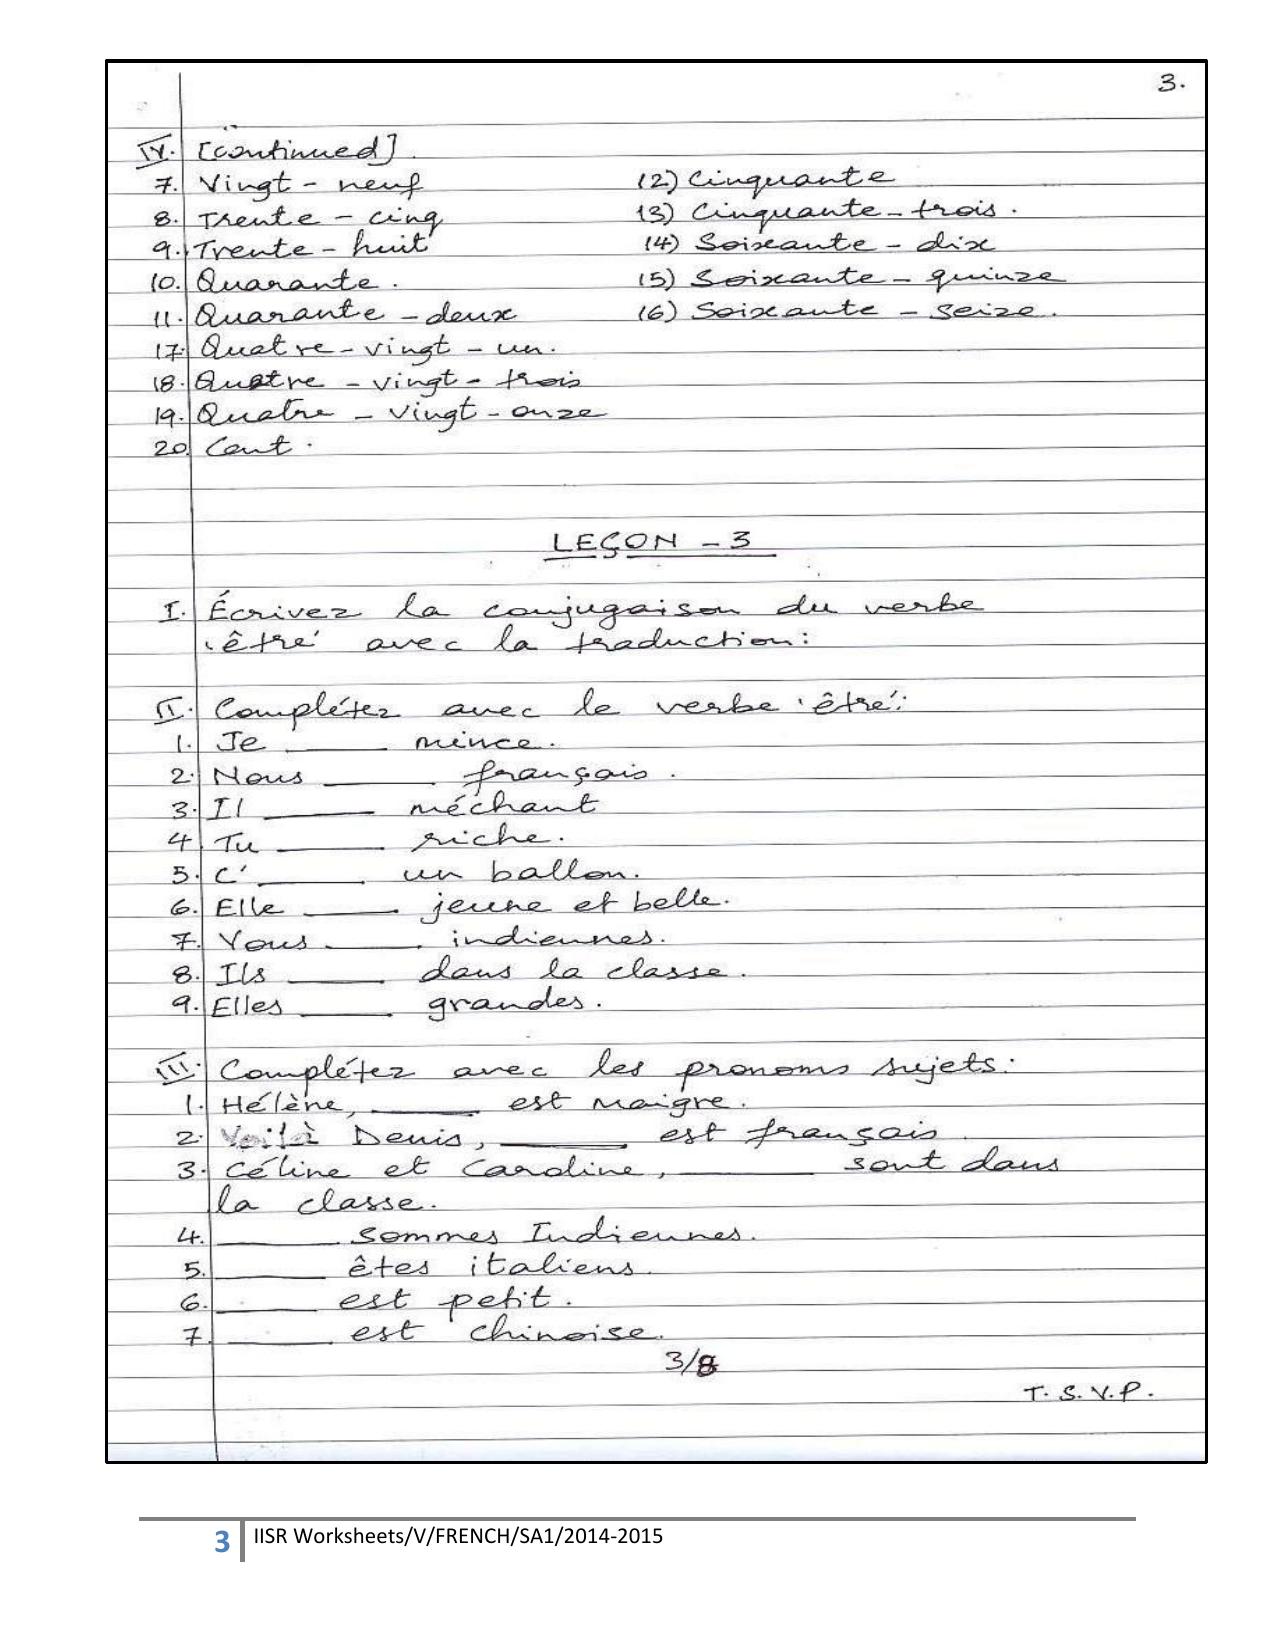 3.
IV. [continued]
7. Vingt - neuf (12) Cinquante
8. Trente - cinq 13) Cinquante - trois.
9. Trente - huit 14) Soixante - dix
10. Quarante. 15) Soixante - quinze
11. Quarante - deux 16) Soixante - seize.
17. Quatre - vingt - un.
18. Quatre - vingt - trois
19. Quatre - vingt - onze
20. Cent.
LEÇON - 3
I. Écrivez la conjugaison du verbe
'être' avec la traduction:
II. Complétez avec le verbe 'être':
1. Je ______ mince.
2. Nous ______ français.
3. Il ______ méchant
4. Tu ______ riche.
5. C' ______ un ballon.
6. Elle ______ jeune et belle.
7. Vous ______ indiennes.
8. Ils ______ dans la classe.
9. Elles ______ grandes.
III. Complétez avec les pronoms sujets:
1. Hélène, ______ est maigre.
2. Voilà Denis, ______ est français
3. Céline et Caroline, ______ sont dans
la classe.
4. ______ sommes Indiennes.
5. ______ êtes italiens.
6. ______ est petit.
7. ______ est chinoise.
3/8
T. S. V. P.
3 IISR Worksheets/V/FRENCH/SA1/2014-2015